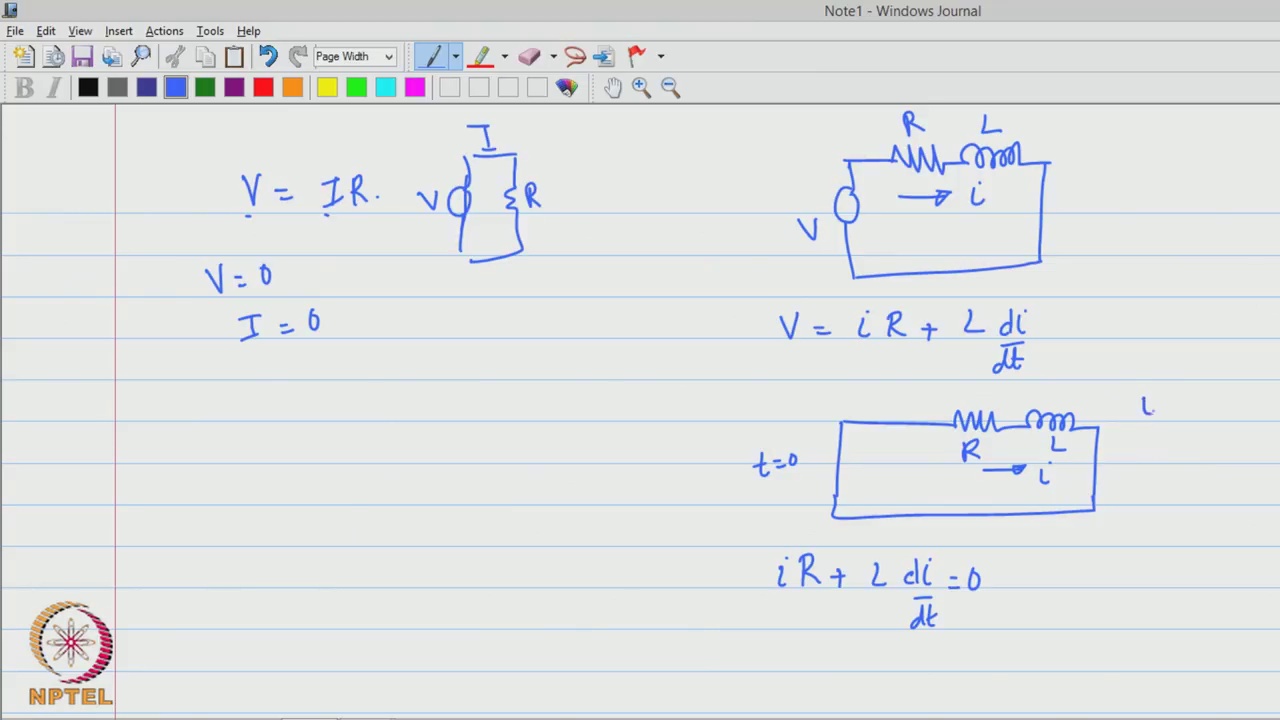 Note1 - Windows Journal
File Edit View Insert Actions Tools Help
Page Width
B I
I
V = IR.
V
R
V = 0
I = 0
R L
i
V
V = iR + L di/dt
t=0
R L
i
iR + L di/dt = 0
NPTEL